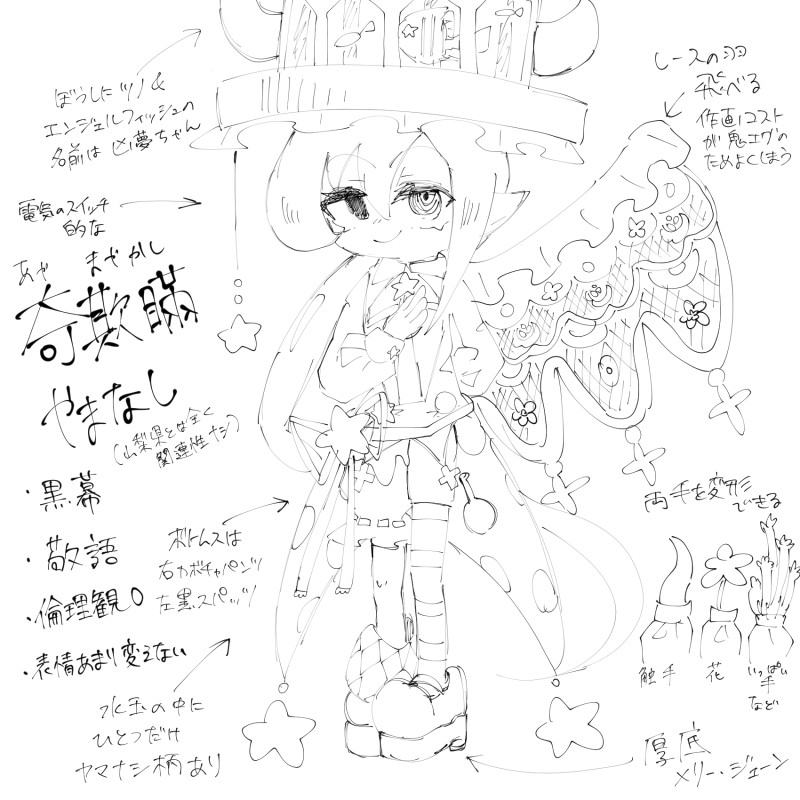 ぼうしにツノ&
エンジェルフィッシュの
名前は凶夢ちゃん
レースの羽
飛べる
作画コスト
が鬼エグの
ためよくしまう
電気のスイッチ
的な
あや まやかし
奇欺瞞
やまなし
(山梨県とは全く
関連性ナシ)
・黒幕
・敬語
・倫理観0
・表情あまり変えない
ボトムスは
右カボチャパンツ
左黒スパッツ
水玉の中に
ひとつだけ
ヤマナシ柄あり
両手を変形
できる
触手
花
いっぱい
手
など
厚底
メリー・ジェーン